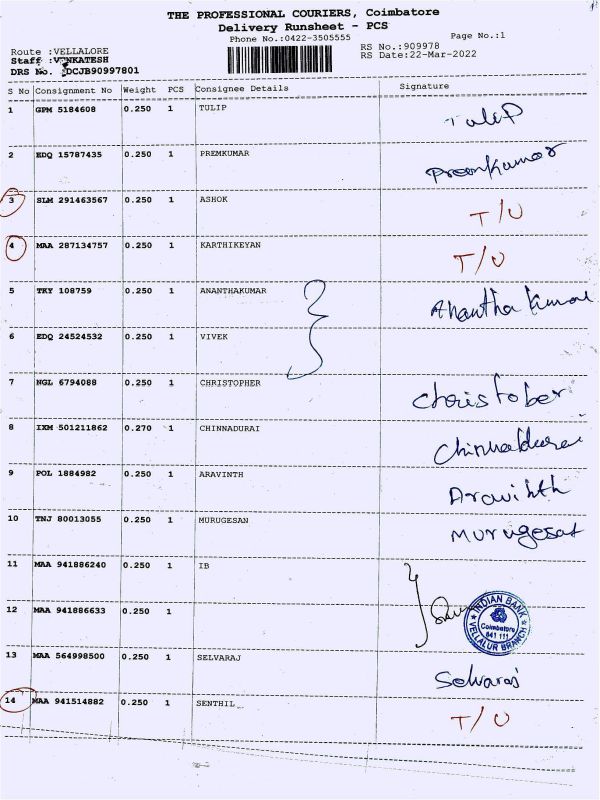 THE PROFESSIONAL COURIERS, Coimbatore
Delivery Runsheet - PCS
Phone No.:0422-3505555
Page No.:1
Route :VELLALORE
RS No.:909978
Staff :VENKATESH
RS Date:22-Mar-2022
DRS No. :DCJB90997801
S No Consignment No Weight PCS Consignee Details Signature
1 GPM 5184608 0.250 1 TULIP Tulip
2 EDQ 15787435 0.250 1 PREMKUMAR Premkumar
3 SLM 291463567 0.250 1 ASHOK T/U
4 MAA 287134757 0.250 1 KARTHIKEYAN T/U
5 TKY 108759 0.250 1 ANANTHAKUMAR Anantha Kumar
6 EDQ 24524532 0.250 1 VIVEK
7 NGL 6794088 0.250 1 CHRISTOPHER Christober
8 IXM 501211862 0.270 1 CHINNADURAI Chinnadurai
9 POL 1884982 0.250 1 ARAVINTH Aravinth
10 TNJ 80013055 0.250 1 MURUGESAN Murugesan
11 MAA 941886240 0.250 1 IB
INDIAN BANK
Coimbatore
641 111
VELLALUR BRANCH
12 MAA 941886633 0.250 1
13 MAA 564998500 0.250 1 SELVARAJ Selvaraj
14 MAA 941514882 0.250 1 SENTHIL T/U